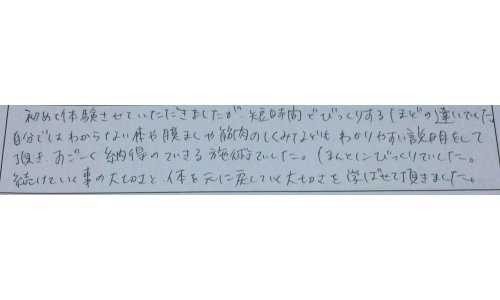 初めて体験させていただきましたが、短時間でびっくりするほどの違いでした
自分ではわからない体や膜ましゃ筋肉のしくみなども わかりやすい説明をして
頂き すご〜く納得のできる施術でした。ほんとにびっくりでした。
続けていく事の大切さと 体を元に戻していく大切さを 学ばせて頂きました。